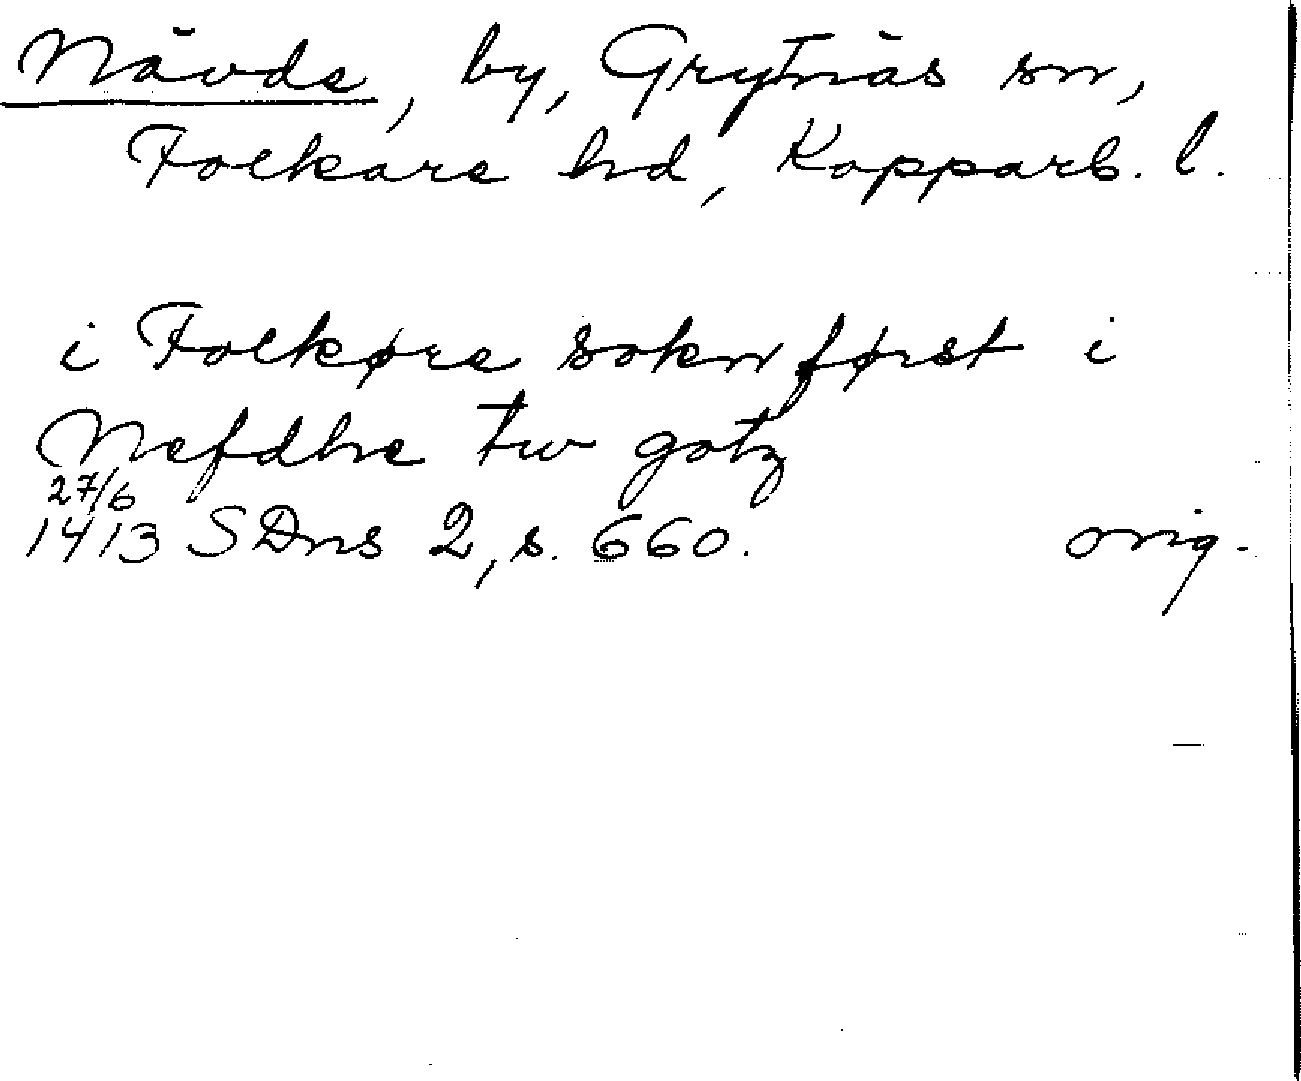 Nävde, by, Grytnäs sn,
Folkare hd, Kopparb. l.
i Folkøre sokn først i
Nefdhe tw gotz
27/6
1413 SDns 2, s. 660. orig.